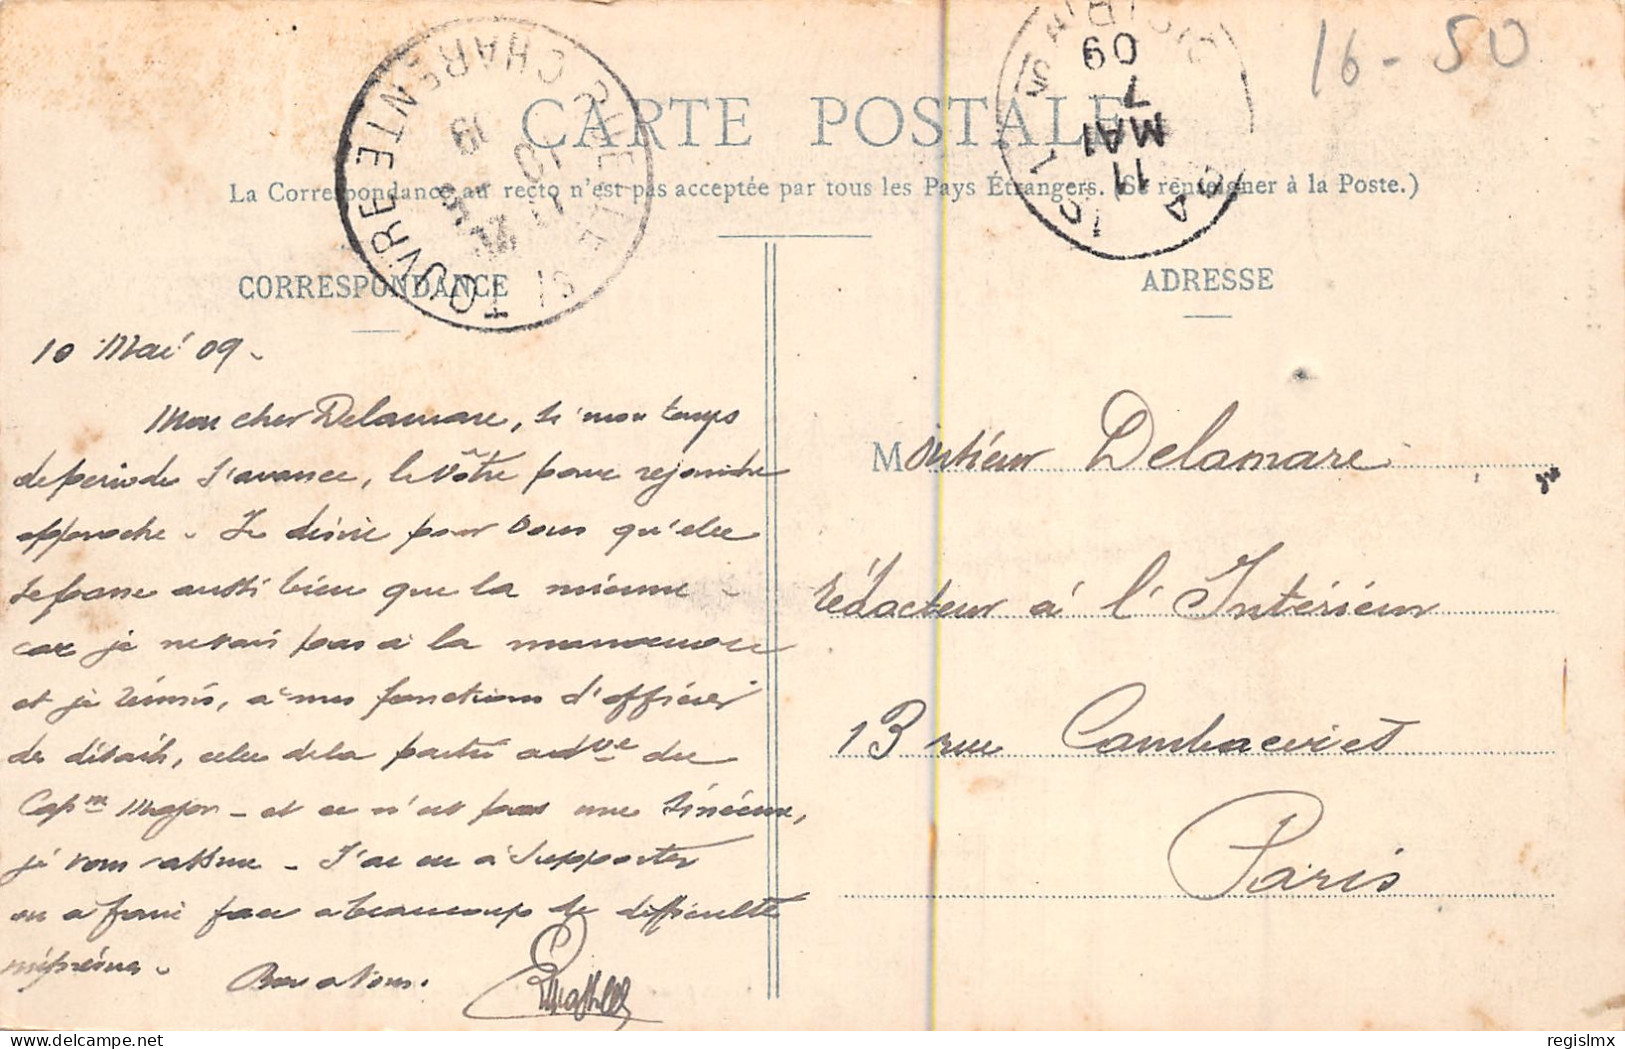 16-50
CARTE POSTALE
La Correspondance au recto n'est pas acceptée par tous les Pays Étrangers. (Se renseigner à la Poste.)
TOUVRE CHARENTE
11 MAI 09
CORRESPONDANCE
ADRESSE
10 Mai 09.
Mon cher Delamare, si mon temps
de période s'avance, le vôtre pour rejoindre
approche. Je désire pour vous qu'elle
se passe aussi bien que la mienne
car je ne vais pas à la manoeuvre
et je réunis, à mes fonctions d'officier
de détails, celle de la partie adve du
Capne Major - et ce n'est pas une sinécure,
je vous assure - J'ai eu à supporter
ou à faire face à beaucoup de difficultés
imprévues.
Bien à vous.
Monsieur Delamare
rédacteur à l'Intérieur
13 rue Cambacérès
Paris
regislmx